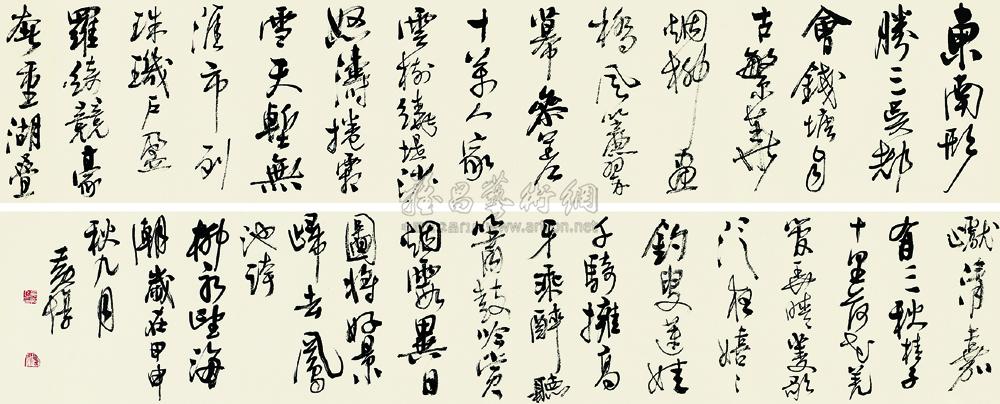 東南形
勝三吳都
會錢塘自
古繁華
烟柳畫
橋風簾翠
幕參差
十萬人家
雲樹繞堤沙
怒濤捲霜
雪天塹無
涯市列
珠璣戶盈
羅綺競豪
奢重湖疊
巘清嘉
有三秋桂子
十里荷花羌
管弄晴菱歌
泛夜嬉〻
釣叟蓮娃
千騎擁高
牙乘醉聽
簫鼓吟賞
烟霞異日
圖將好景
歸去鳳
池誇
柳永望海
潮歲在甲申
秋九月
黃惇
雅昌藝術網